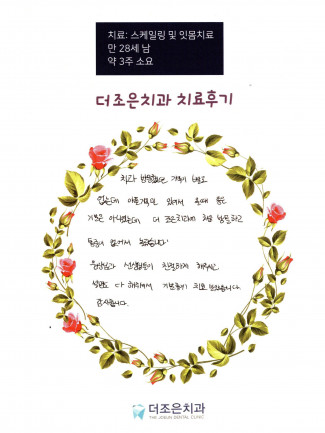 치료: 스케일링 및 잇몸치료
만 28세 남
약 3주 소요
더조은치과 치료후기
치과 방문했던 기억이 별로
없는데 아픈기억만 있어서 올때 좋은
기분은 아니었는데 더 조은치과에 처음 방문하고
통증이 없어서 놀랐습니다!
원장님과 선생님들이 친절하게 해주시고
설명도 다 해주셔서 기분좋게 치료 받았습니다.
감사합니다.
더조은치과
THE JOEUN DENTAL CLINIC